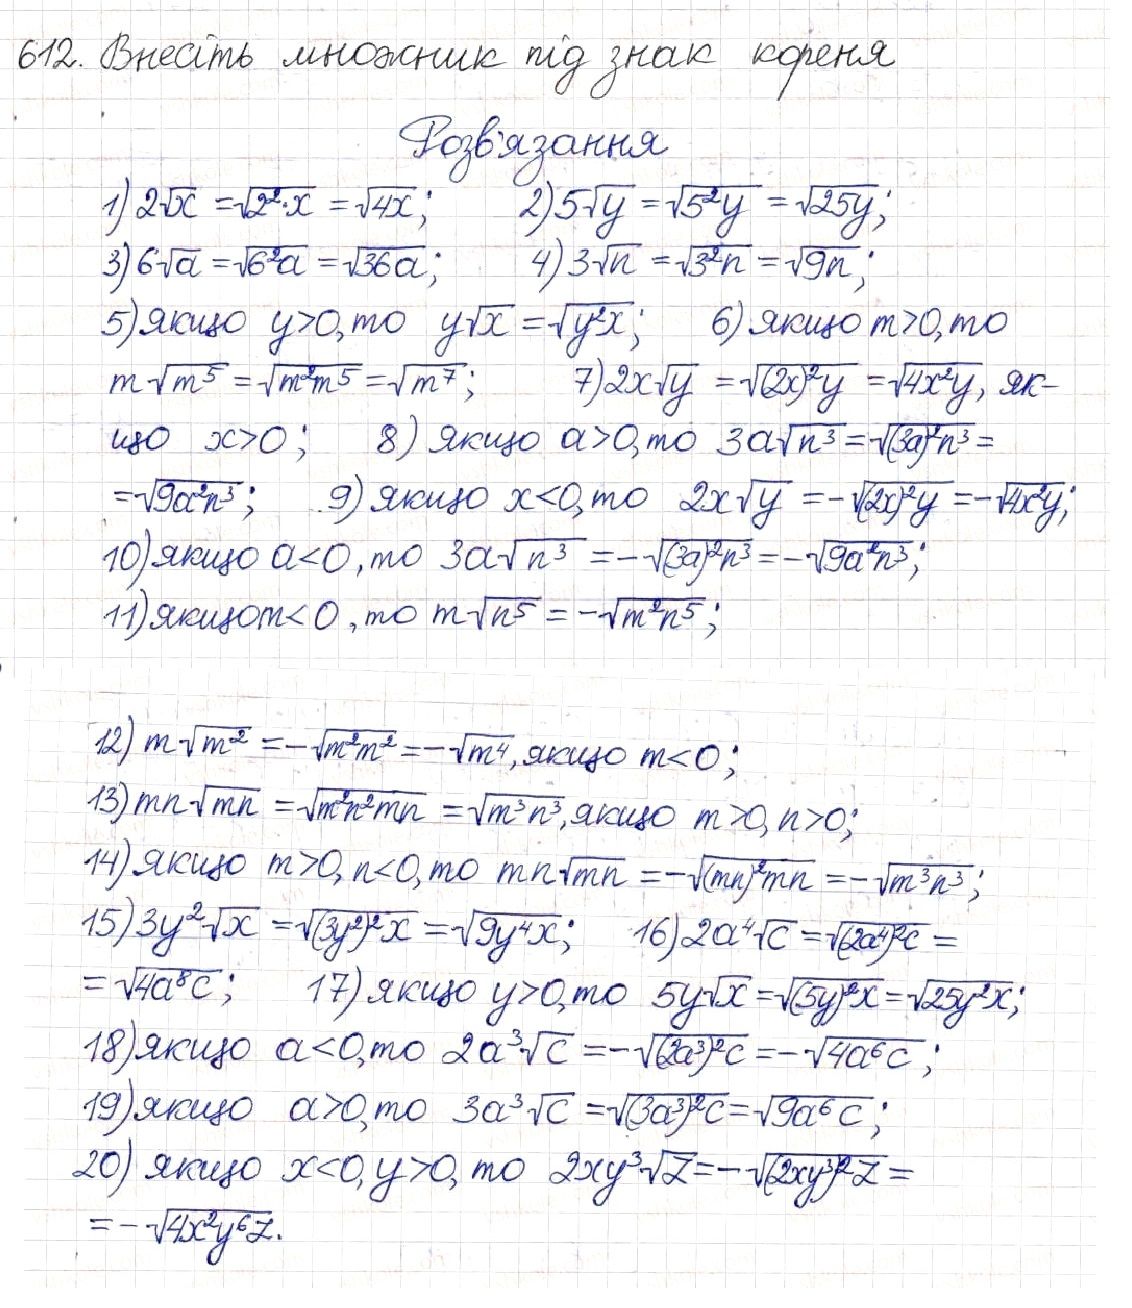 612. Внесіть множник під знак кореня
Розв'язання
1) 2√x = √(2²·x) = √(4x); 2) 5√y = √(5²y) = √(25y);
3) 6√a = √(6²a) = √(36a); 4) 3√n = √(3²n) = √(9n);
5) якщо y>0, то y√x = √(y²x); 6) якщо m>0, то
m√(m⁵) = √(m²m⁵) = √(m⁷); 7) 2x√y = √((2x)²y) = √(4x²y), як-
що x>0; 8) якщо a>0, то 3a√(n³) = √((3a)²n³) =
= √(9a²n³); 9) якщо x<0, то 2x√y = -√((2x)²y) = -√(4x²y);
10) якщо a<0, то 3a√(n³) = -√((3a)²n³) = -√(9a²n³);
11) якщо m<0, то m√(n⁵) = -√(m²n⁵);
12) m√(m²) = -√(m²m²) = -√(m⁴), якщо m<0;
13) mn√(mn) = √(m²n²mn) = √(m³n³), якщо m>0, n>0;
14) якщо m>0, n<0, то mn√(mn) = -√((mn)²mn) = -√(m³n³);
15) 3y²√x = √((3y²)²x) = √(9y⁴x); 16) 2a⁴√c = √((2a⁴)²c) =
= √(4a⁸c); 17) якщо y>0, то 5y√x = √((5y)²x) = √(25y²x);
18) якщо a<0, то 2a³√c = -√((2a³)²c) = -√(4a⁶c);
19) якщо a>0, то 3a³√c = √((3a³)²c) = √(9a⁶c);
20) якщо x<0, y>0, то 2xy³√z = -√((2xy³)²z) =
= -√(4x²y⁶z).